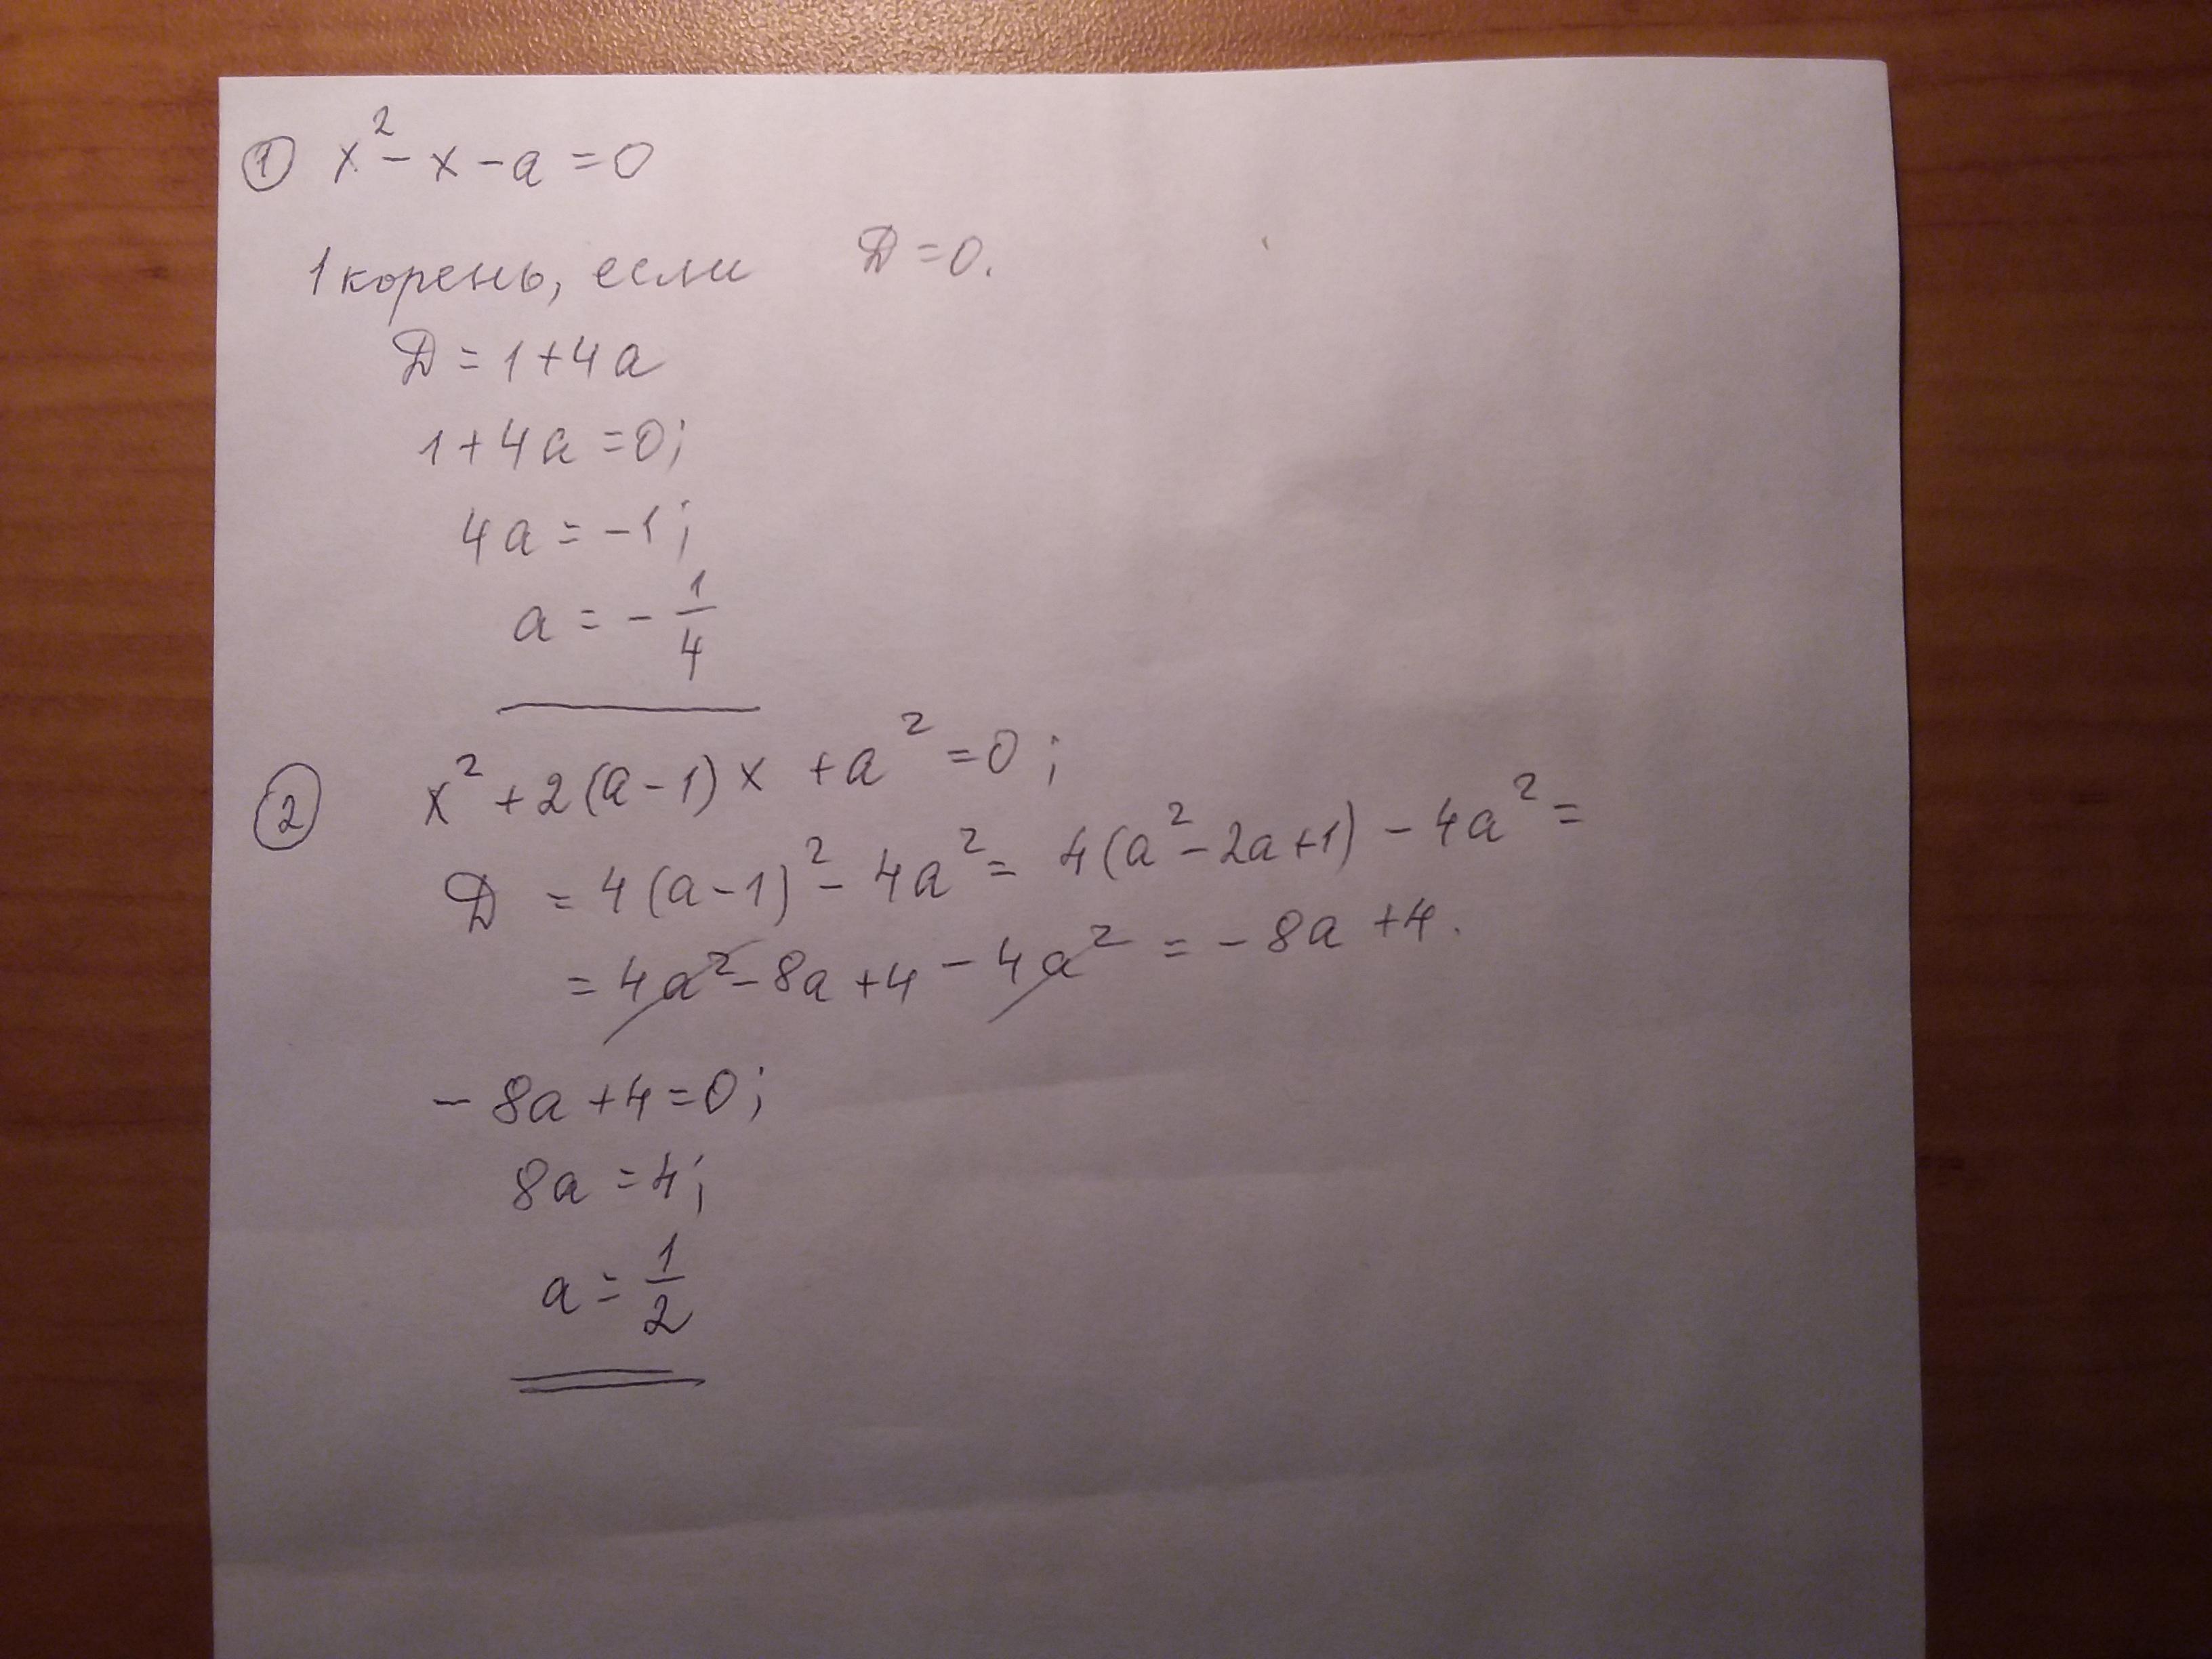 ① x² - x - a = 0
1 корень, если D = 0.
D = 1 + 4a
1 + 4a = 0;
4a = -1;
a = - 1/4
② x² + 2(a - 1)x + a² = 0;
D = 4(a - 1)² - 4a² = 4(a² - 2a + 1) - 4a² =
= 4a² - 8a + 4 - 4a² = - 8a + 4.
- 8a + 4 = 0;
8a = 4;
a = 1/2